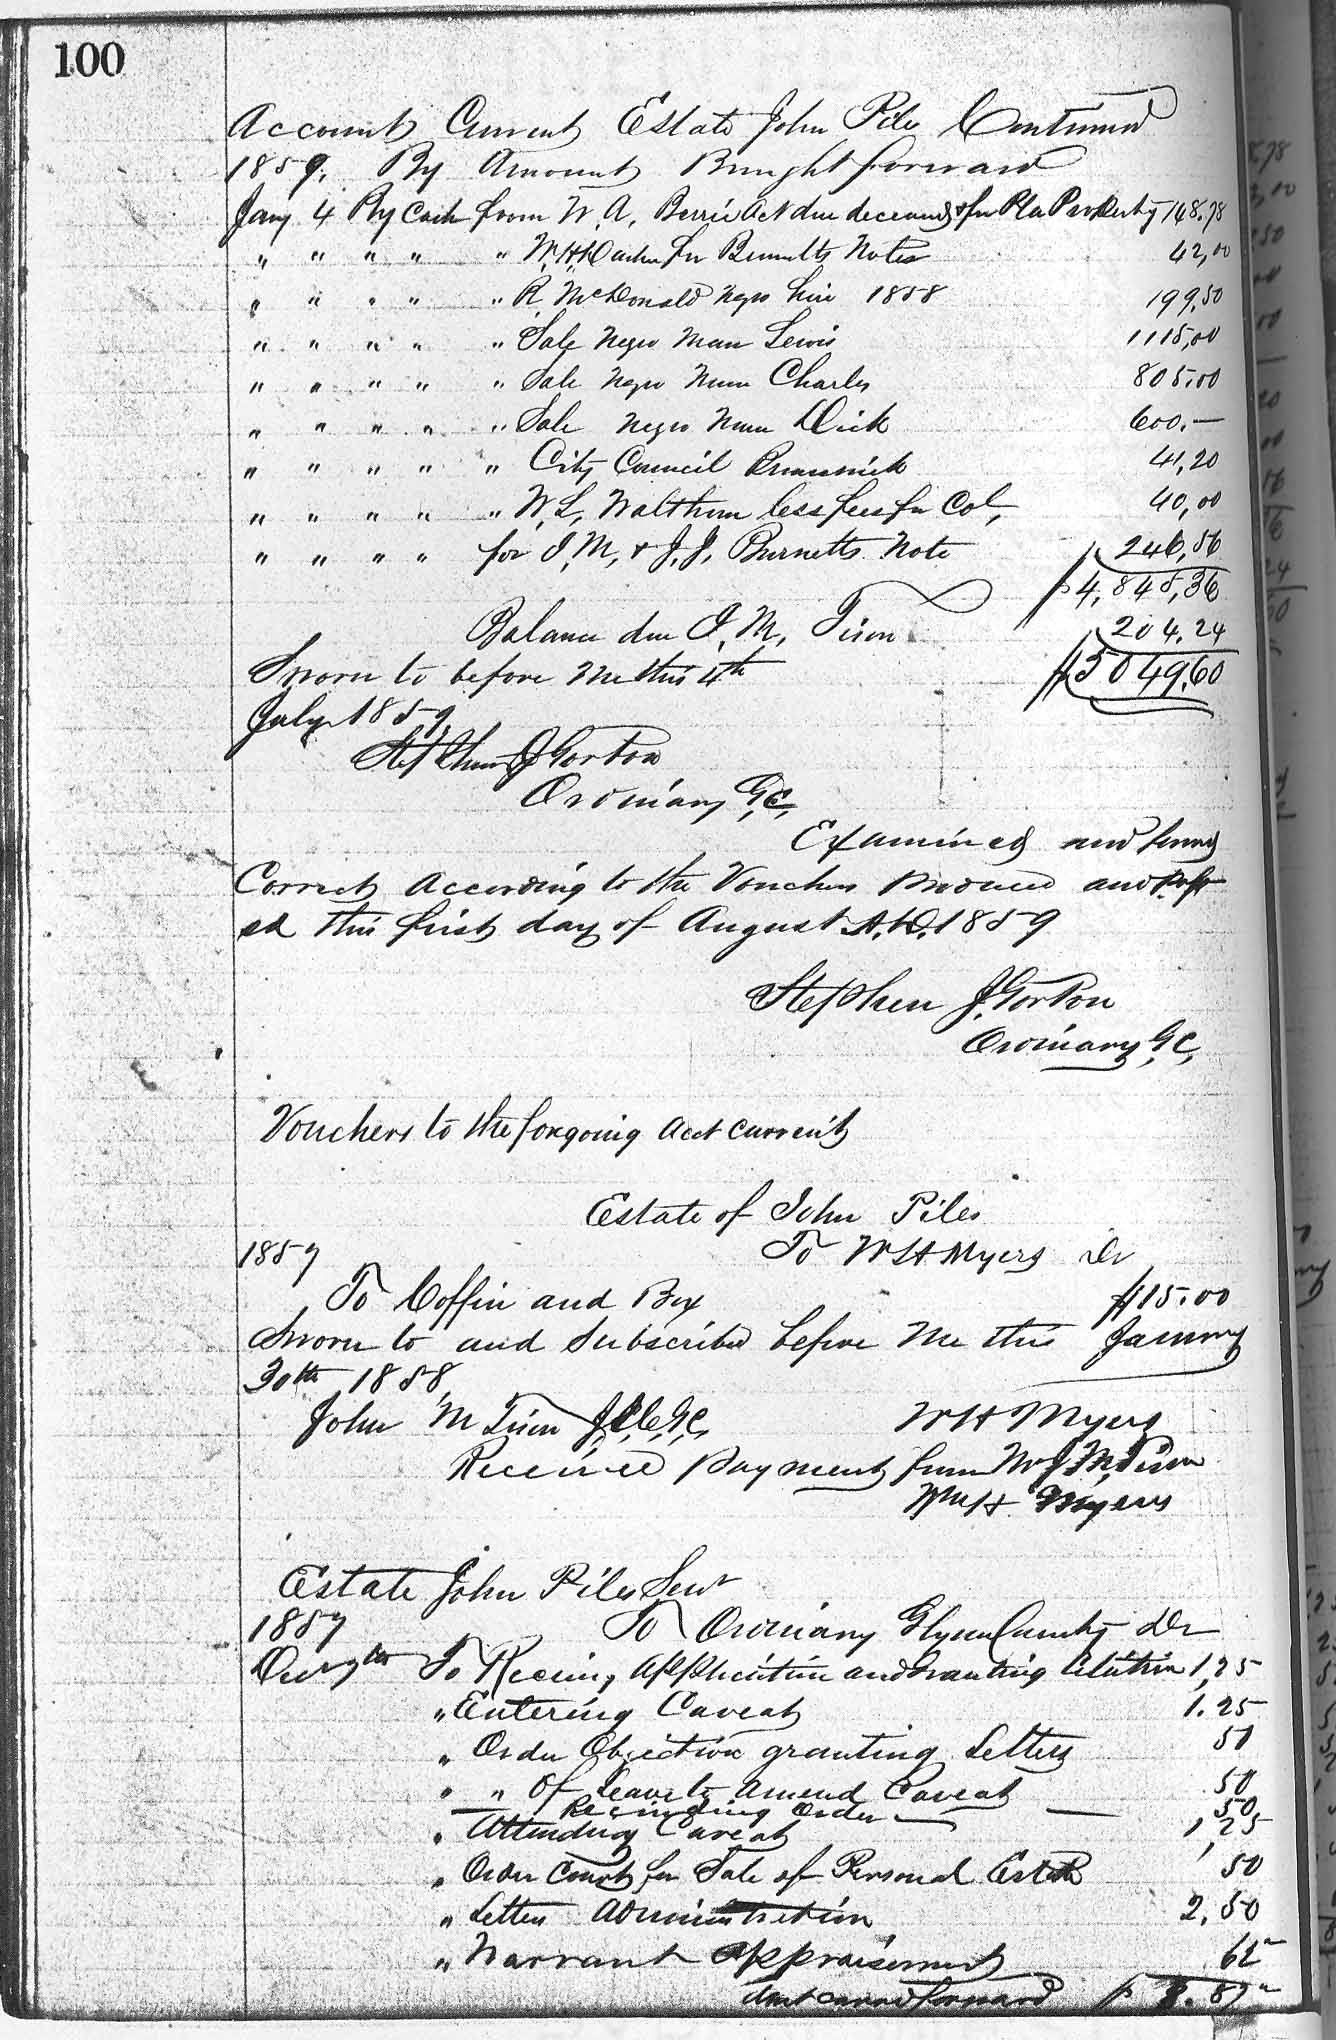 100
Account Current Estate John Pile Continued
1859. By Amount Brought forward
Jany 4 By Cash from W. A. Berrie Act due deceased & for Pla Property 148.78
" " " " " W. H. for Burnetts Notes 42,00
" " " " " R. McDonald negro hire 1858 199,50
" " " " " Sale Negro Man Lewis 1115,00
" " " " " Sale negro man Charles 805.00
" " " " " Sale negro man Dick 600.—
" " " " " City Council Brunswick 41,20
" " " " " W. L. Walthour less fees for Col, 40,00
" " " " for J. M, & J. J, Burnetts Note 246,56
$4,845,36
Balance due J. M, Tison 204.24
Sworn to before me this 4th $5049,60
July 1859
Stephen J Gorton
Ordinary G, C,
Examined and found
Correct According to the Vouchers produced and Pass
ed this first day of August A. D. 1859
Stephen J. Gorton
Ordinary G, C,
Vouchers to the forgoing Acct Current
Estate of John Piles
1857 To W H Myers Dr
To Coffin and Box $15.00
Sworn to and Subscribed before me this January
30th 1858
John M Tison J. I. C. G. C. W H Myers
Received payment from J. M. Tison
Wm H Myers
Estate John Piles Senr
1857 To Ordinary Glynn County Dr
To Receivg Application and Granting Citation 1,25
" Entering Caveat 1.25
" Order Objection granting Letters 50
" " Of Leave to Amend Caveat 50
Recinding Order 50
" Attending Caveat 1,25
" Order Court for Sale of Personal Estate 50
" Letters Administration 2,50
" Warrant Appraisement 62
Amt carried forward $ 8.87